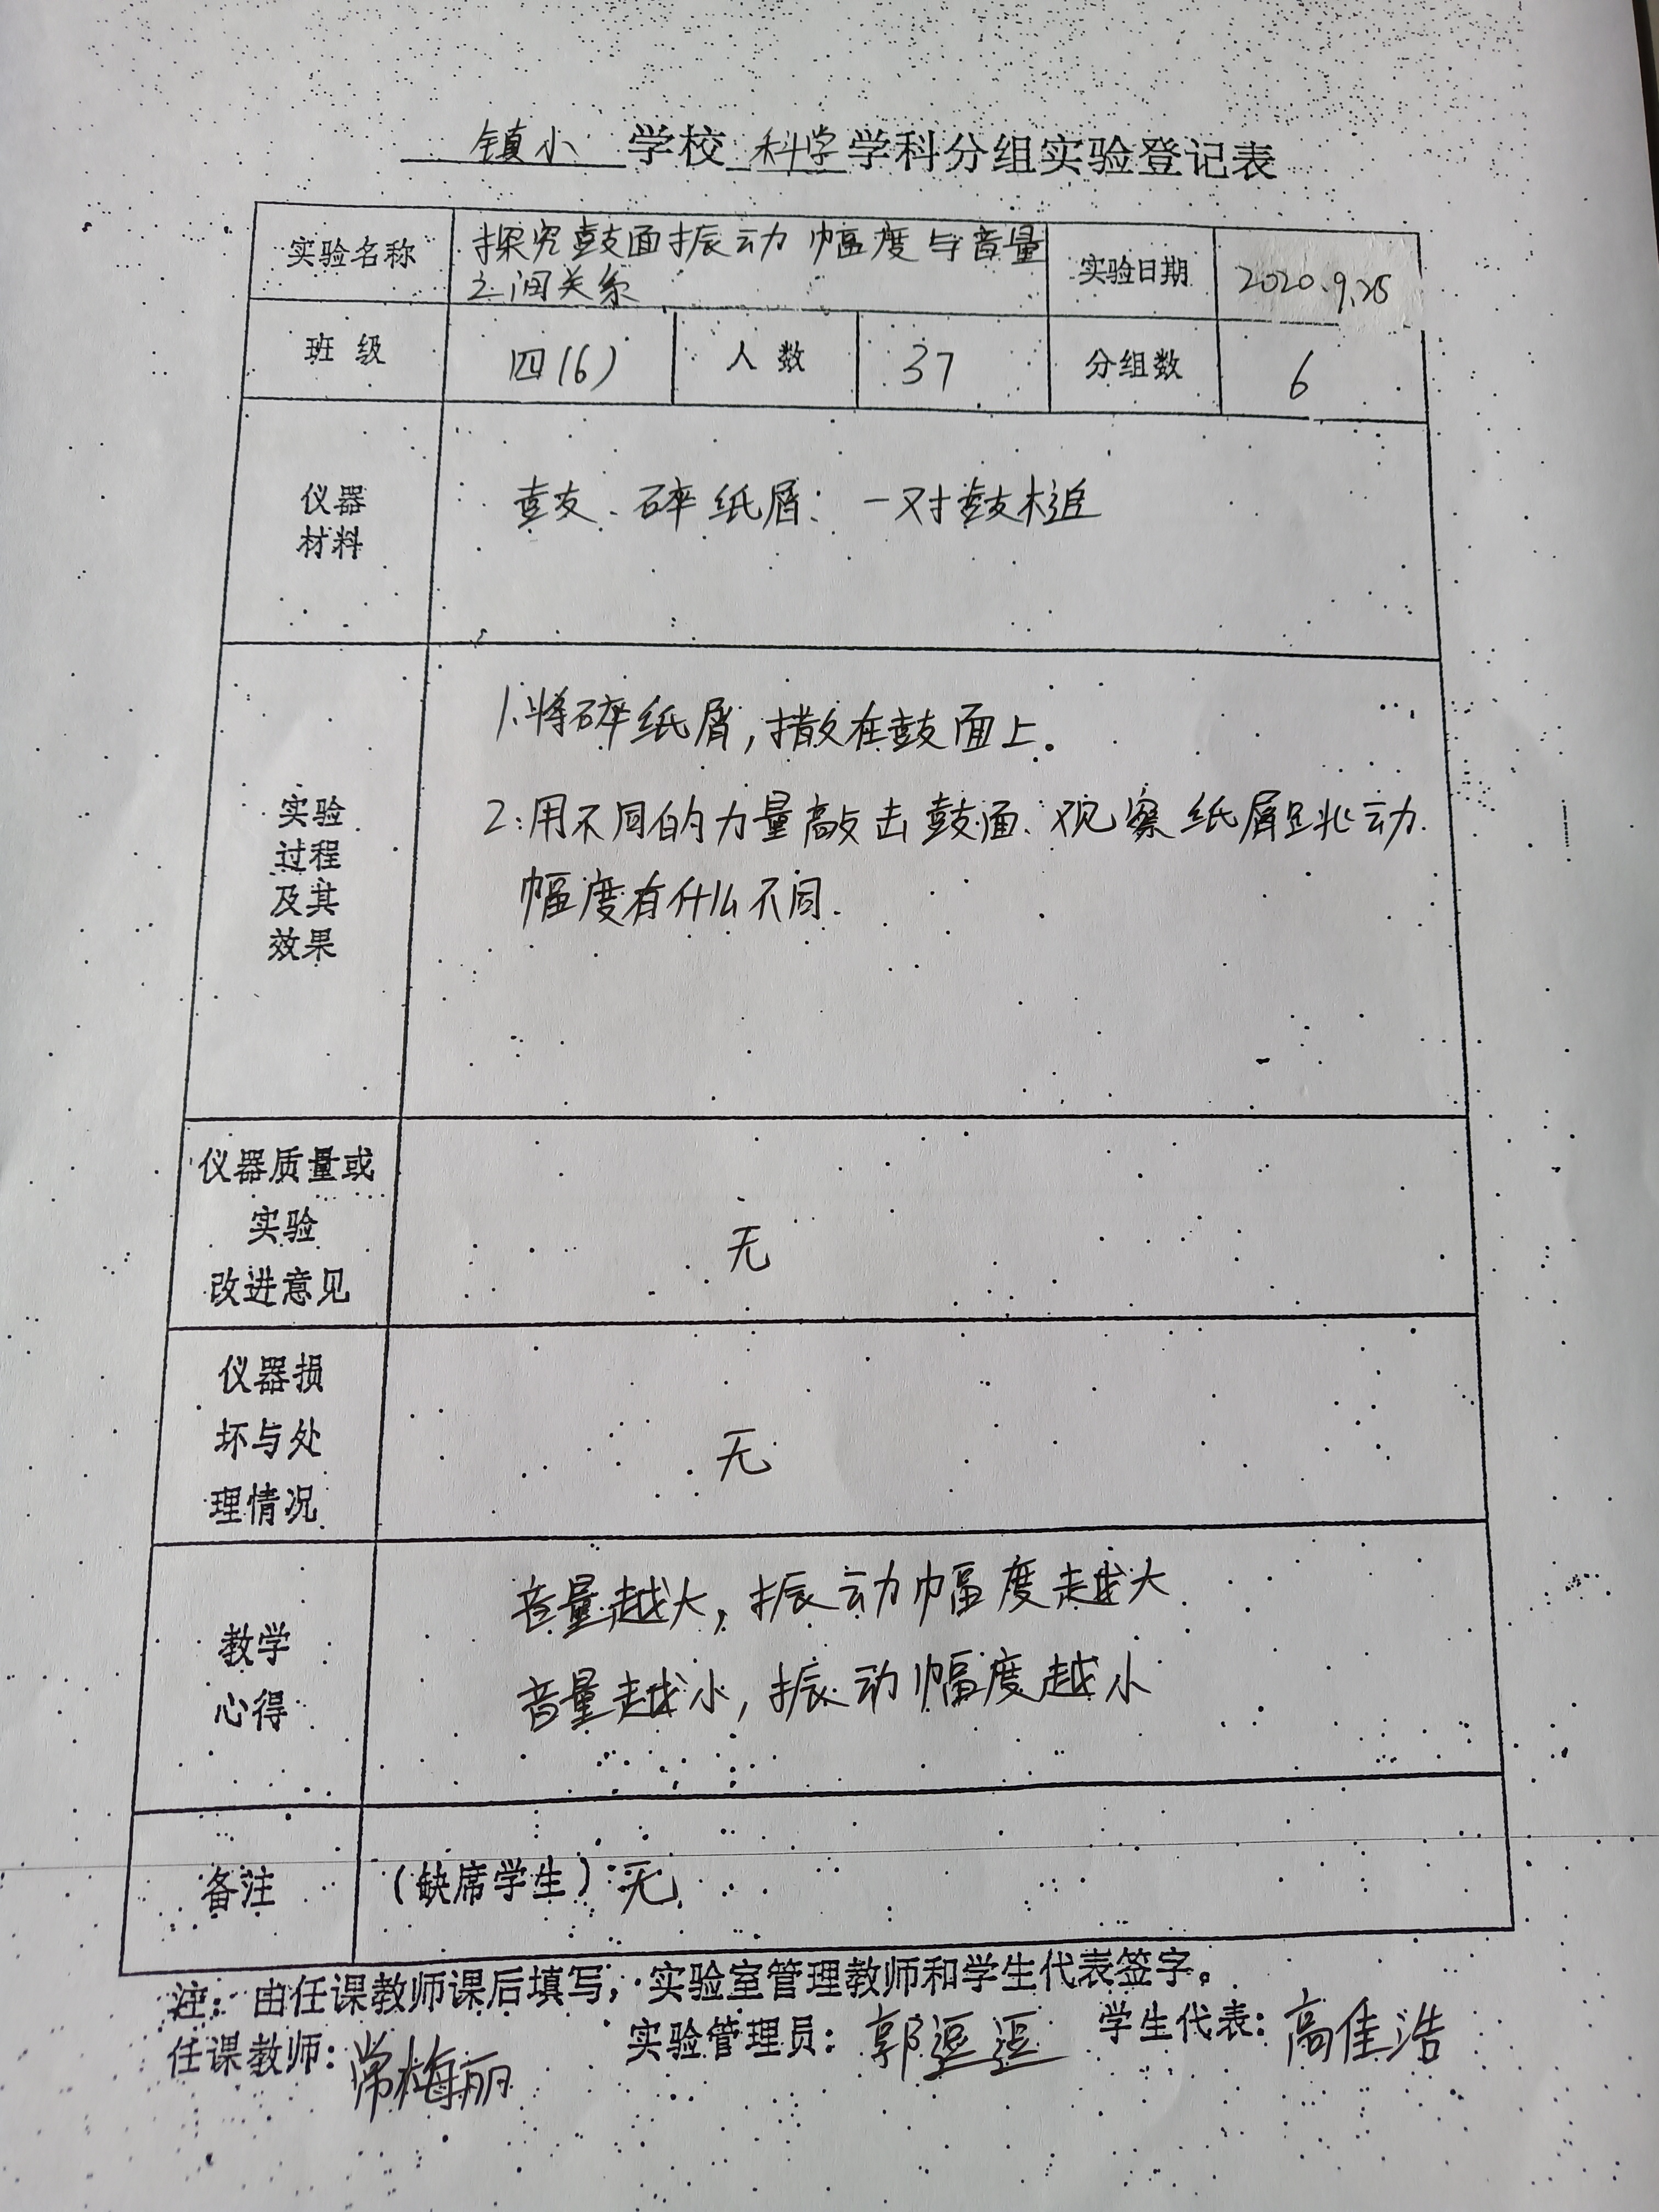 镇小 学校 科学 学科分组实验登记表
实验名称 探究鼓面振动幅度与音量之间关系 实验日期 2020.9.25
班级 四(6) 人数 37 分组数 6
仪器
材料
鼓、碎纸屑:一对鼓槌
实验
过程
及其
效果
1.将碎纸屑,撒在鼓面上。
2:用不同的力量敲击鼓面、观察纸屑跳动
幅度有什么不同.
仪器质量或
实验
改进意见
无
仪器损
坏与处
理情况
无
教学
心得
音量越大,振动幅度越大
音量越小,振动幅度越小
备注 (缺席学生):无
注:由任课教师课后填写,实验室管理教师和学生代表签字。
任课教师:常梅丽 实验管理员:郭逗逗 学生代表:高佳浩